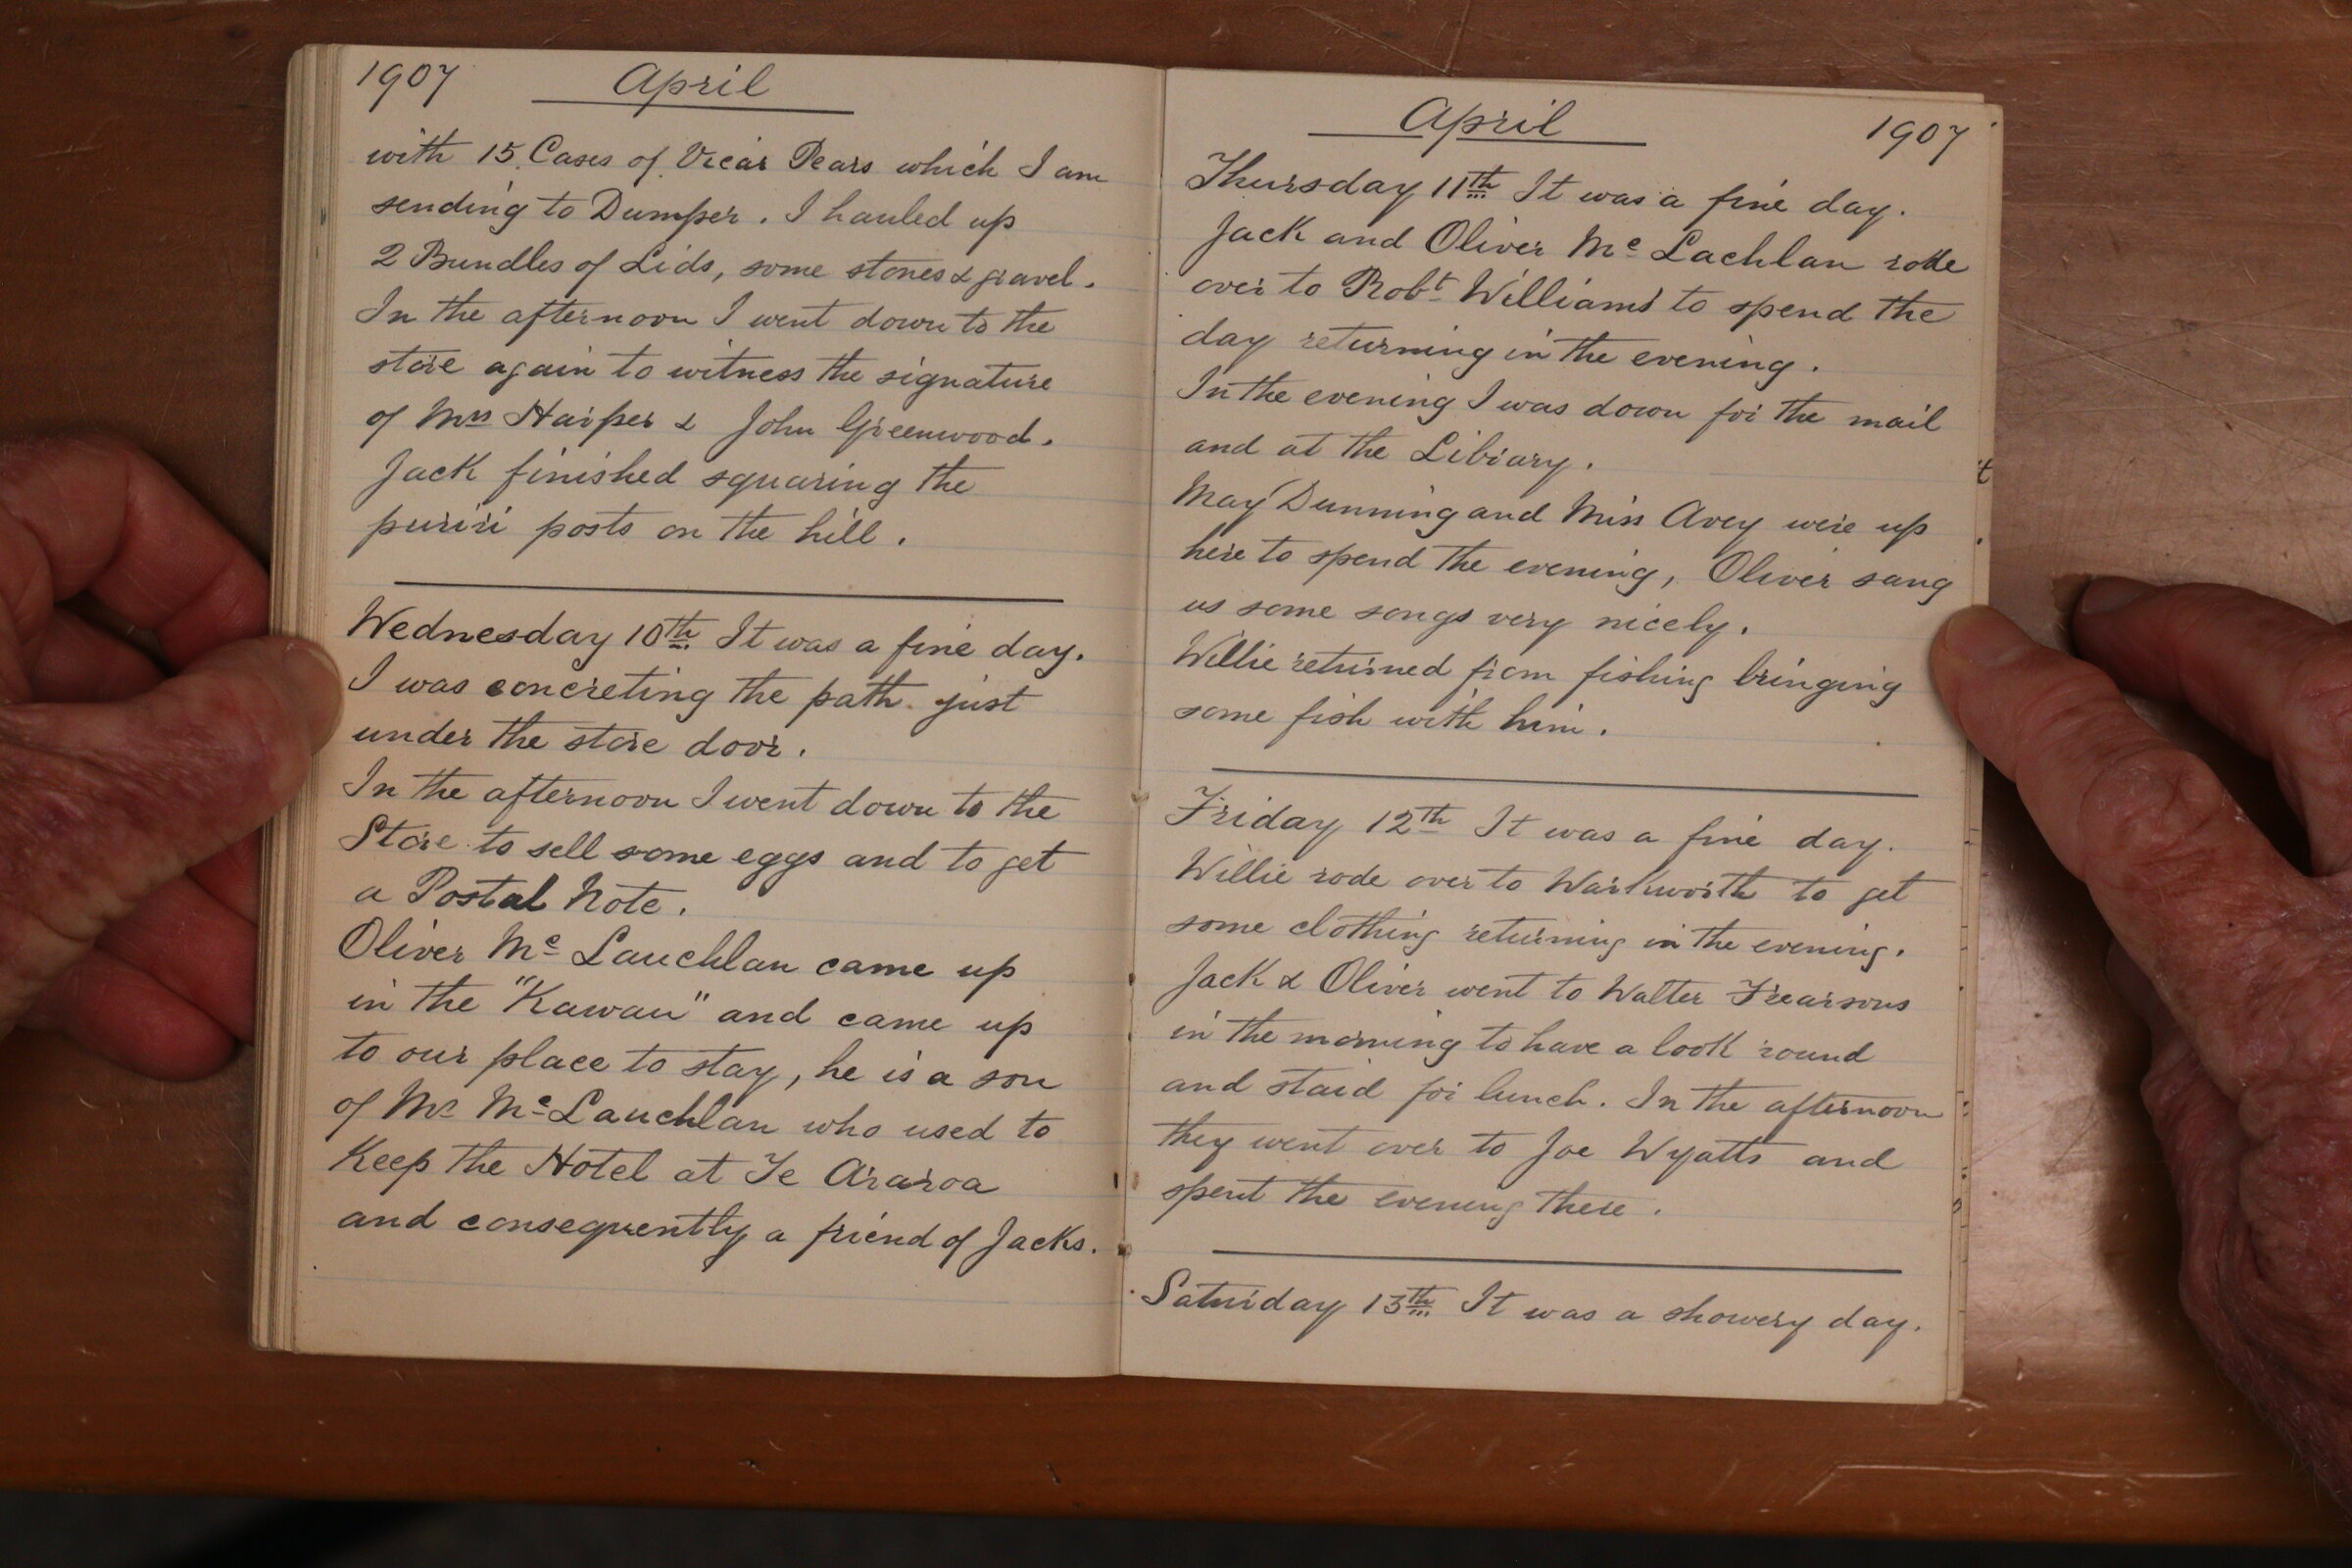 1907 April
with 15 Cases of Vicar Pears which I am
sending to Dumper. I hauled up
2 Bundles of Lids, some stones & gravel.
In the afternoon I went down to the
store again to witness the signature
of Mrs Harper & John Greenwood.
Jack finished squaring the
puriri posts on the hill.
Wednesday 10th It was a fine day.
I was concreting the path just
under the store door.
In the afternoon I went down to the
Store to sell some eggs and to get
a Postal Note.
Oliver Mc Lauchlan came up
in the "Kawau" and came up
to our place to stay, he is a son
of Mr McLauchlan who used to
Keep the Hotel at Te Araroa
and consequently a friend of Jacks.
April 1907
Thursday 11th It was a fine day.
Jack and Oliver Mc Lachlan rode
over to Robt Williams to spend the
day returning in the evening.
In the evening I was down for the mail
and at the Library.
May Dunning and Miss Avey were up
here to spend the evening, Oliver sang
us some songs very nicely.
Willie returned from fishing bringing
some fish with him.
Friday 12th It was a fine day.
Willie rode over to Warkworth to get
some clothing returning in the evening.
Jack & Oliver went to Walter Frearsons
in the morning to have a look round
and staid for lunch. In the afternoon
they went over to Joe Wyatts and
spent the evening there.
Saturday 13th It was a showery day.